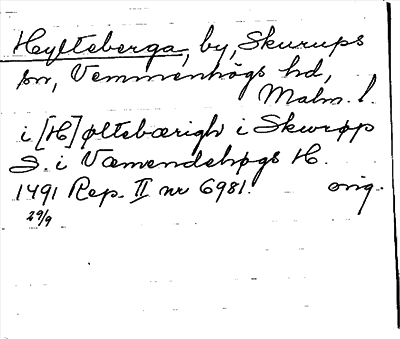 Hylteberga, by, Skurups
sn, Vemmenhögs hd,
Malm. l.
i [H]øltebærigh i Skwrøp
S. i Væmendehøgs H.
1491 Rep. II nr 6981. orig.
29/9